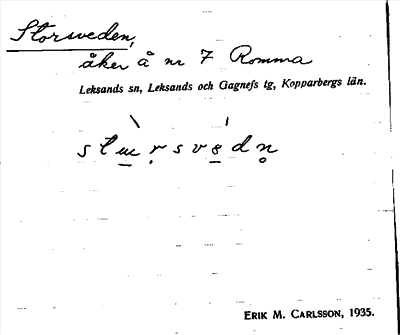 Storsveden,
åker å nr 7 Romma
Leksands sn, Leksands och Gagnefs tg, Kopparbergs län.
ERIK M. CARLSSON, 1935.